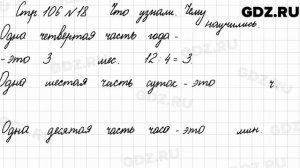 GDZ.RU
Стр. 106 №18. Что узнали. Чему научились
Одна четвертая часть года -
- это 3 мес. 12 : 4 = 3
Одна шестая часть суток - это ч.
Одна десятая часть часа - это мин.
GDZ.RU